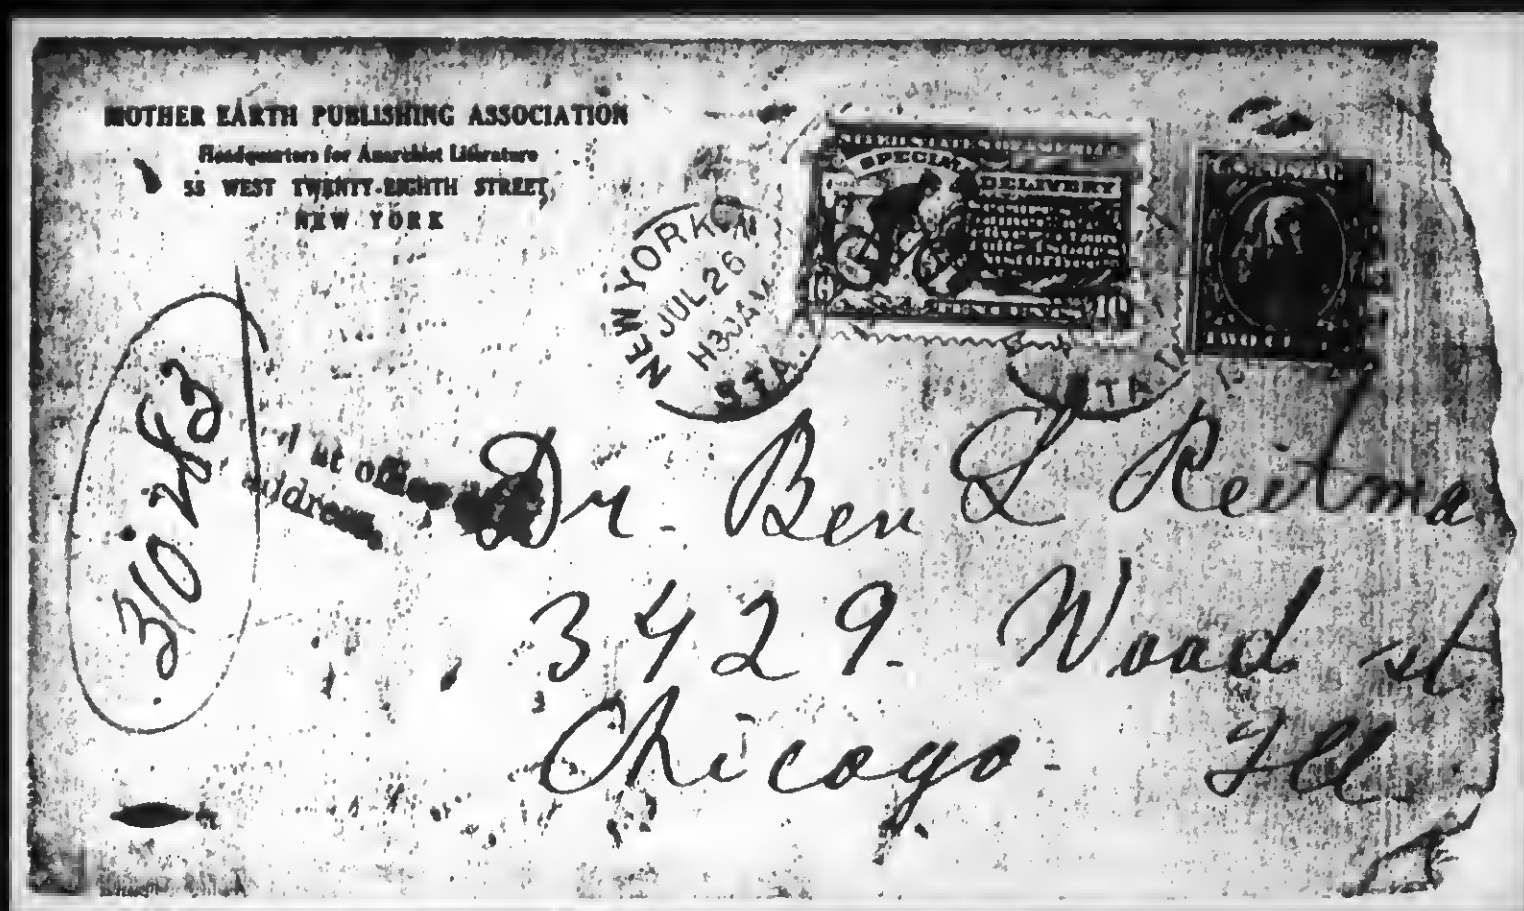 MOTHER EARTH PUBLISHING ASSOCIATION
Headquarters for Anarchist Literature
55 WEST TWENTY-EIGHTH STREET
NEW YORK
NEW YORK
JUL 26
STA.
UNITED STATES OF AMERICA
SPECIAL DELIVERY
TEN CENTS 10
TWO
STA.
at office
address
310
Dr. Ben L Reitma
3429. Wood st
Chicago - Ill.